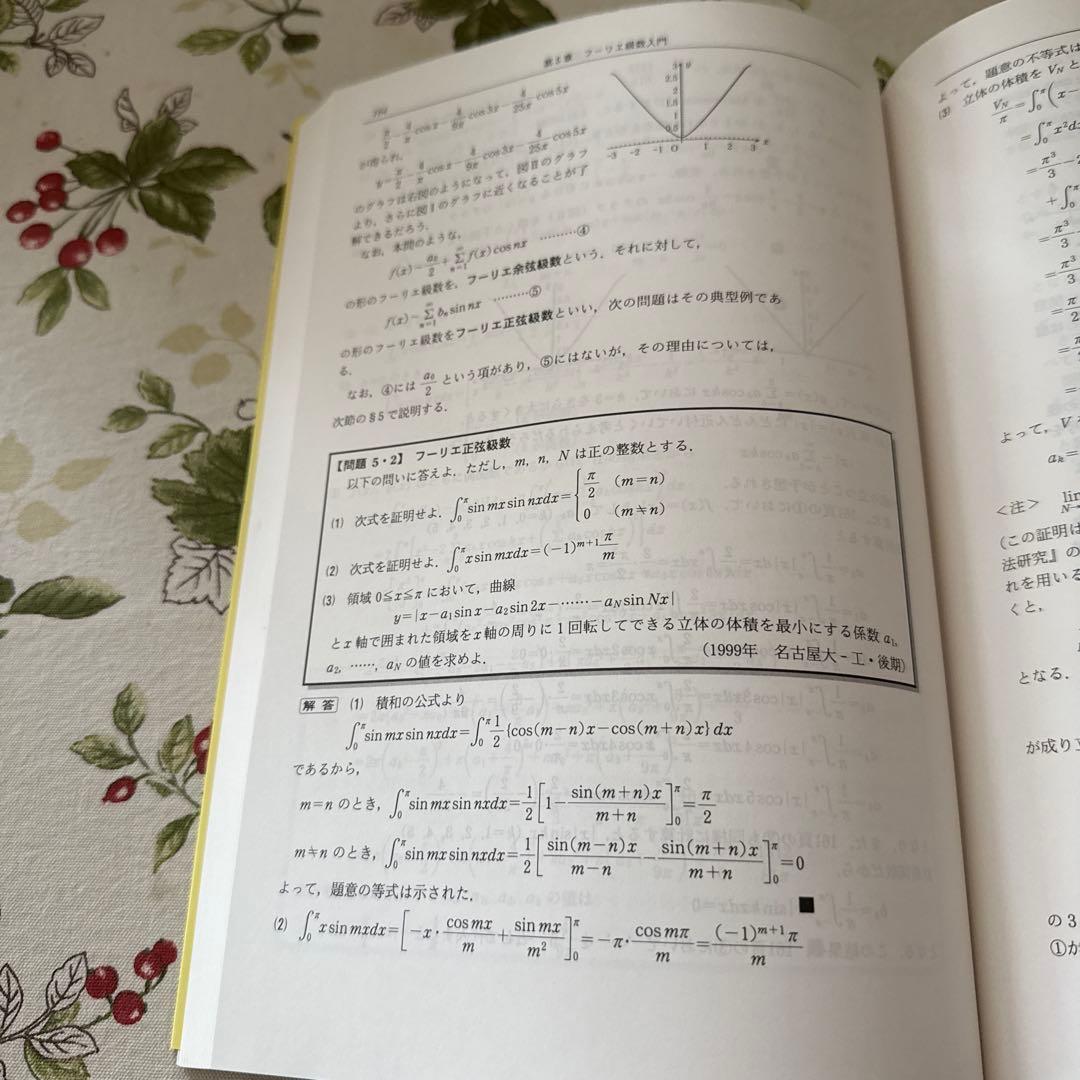 第5章 フーリエ級数入門
π/2 − 4/π cosx − 4/9π cos3x − 4/25π cos5x
が得られ，
y = π/2 − 4/π cosx − 4/9π cos3x − 4/25π cos5x
のグラフは右図のようになって，図Ⅱのグラフ
より，さらに図Ⅰのグラフに近くなることが了
解できるだろう．
なお，本問のような，
f(x)~a₀/2+Σ_{n=1}^{∞} f(x)cosnx ………④
の形のフーリエ級数を，フーリエ余弦級数という．それに対して，
f(x)~Σ_{n=1}^{∞} bₙsinnx ………⑤
の形のフーリエ級数をフーリエ正弦級数といい，次の問題はその典型例であ
る．
なお，④には a₀/2 という項があり，⑤にはないが，その理由については，
次節の§5で説明する．
3 y
2.5
2
1.5
1
0.5
-3 -2 -1 O 1 2 3 x
【問題 5・2】 フーリエ正弦級数
以下の問いに答えよ．ただし，m, n, N は正の整数とする．
(1) 次式を証明せよ．∫₀^π sin mx sin nxdx={π/2 (m=n)
0 (m≠n)
(2) 次式を証明せよ．∫₀^π x sin mxdx=(−1)^{m+1} π/m
(3) 領域 0≦x≦π において，曲線
y=|x−a₁sin x−a₂sin 2x−……−a_N sin Nx|
とx軸で囲まれた領域をx軸の周りに1回転してできる立体の体積を最小にする係数 a₁,
a₂, ……, a_N の値を求めよ．
(1999年 名古屋大−工・後期)
解答 (1) 積和の公式より
∫₀^π sin mx sin nxdx=∫₀^π 1/2{cos(m−n)x−cos(m+n)x}dx
であるから，
m=n のとき，∫₀^π sin mx sin nxdx=1/2[1−sin(m+n)x/m+n]₀^π=π/2
m≠n のとき，∫₀^π sin mx sin nxdx=1/2[sin(m−n)x/m−n − sin(m+n)x/m+n]₀^π=0
よって，題意の等式は示された． ■
(2) ∫₀^π x sin mxdx=[−x・cos mx/m+sin mx/m²]₀^π=−π・cos mπ/m=(−1)^{m+1}π/m
よって，題意の不等式は
(3) 立体の体積を V_N と
V_N/π=∫₀^π(x−
=∫₀^π x²dx
=π³/3−2
+∫₀^π
=π³/3
=π³/3
=π/2
よって，V
a_k=
＜注＞ lim
(この証明は
法研究』の
れを用いる
くと，
となる．
が成り立
の3
①か